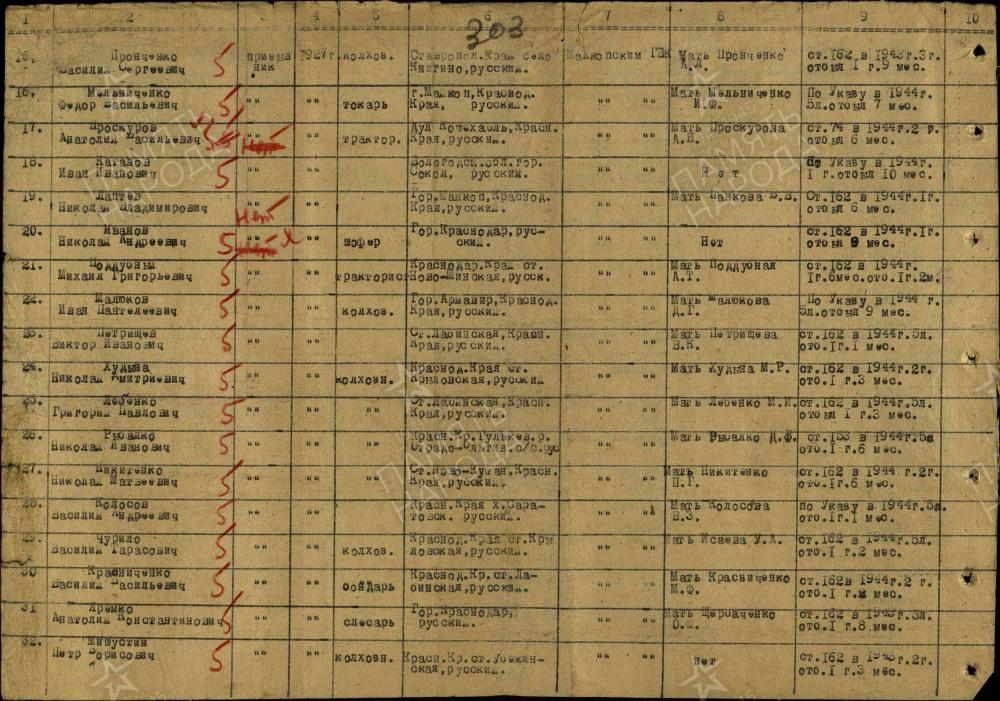 1 2 3 4 5 6 7 8 9 10
303
15. Пронченко призыв 1927г. колхов. Ставропол.Края село Майкопским ГВК Мать Пронченко ст.162 в 1943г.3г.
Василий Сергеевич 5 ник Книгино,русский. А.Л. отбыл 1 г.9 мес.
16. Мельниченко г.Майкоп,Краснод. Мать Мельниченко По Укаву в 1944г.
Федор Васильевич 5 "" "" токарь Края, русский. "" "" М.Ф. 5л.отбыл 7 мес.
17. Проскуров Аул Кошехабль,Красн. Мать Проскурова ст.74 в 1944г.2 г.
Анатолий Васильевич 5 Нет "" трактор. Края,русский. "" "" А.Я. отбыл 6 мес.
18. Каганов Вологодск.обл.гор. По Укаву в 1944г.
Иван Иванович 5 "" "" Сокол, русский. "" "" Нет 1 г.отбыл 10 мес.
19. Лаптев Гор.Майкоп,Краснод. Мать Панкова В.В. Ст.162 в 1944г.1г.
Николай Владимирович "" "" Края,русский. "" "" отбыл 6 мес.
Нет
20. Иванов Гор.Краснодар,рус- ст.162 в 1944г.1г.
Николай Андреевич 5 "" шофер ский. "" "" Нет отбыл 9 мес.
21. Поддубный Краснодар.Края ст. Мать Поддубная ст.162 в 1944г.
Михаил Григорьевич 5 "" "" тракторист Ново-Минская,русск. "" "" А.Т. 1г.6мес.отб.1г.2м.
22. Шалюков Гор.Армавир,Краснод. Мать Шалюкова По Укаву в 1944 г.
Иван Пантелеевич 5 "" "" колхов. Края,русский. "" "" Д.Г. 5л.отбыл 9 мес.
23. Петрищев Ст.Лабинская,Красн. Мать Петрищева ст.162 в 1944г.5л.
Виктор Иванович 5 "" "" Края,русский. "" "" В.К. отб.1г.1 мес.
24. Худына Краснод.Края ст. Мать Худына М.Р. ст.162 в 1944г.2г.
Николай Дмитриевич 5 "" "" колховн. Крыловская,русский "" "" отб.1 г.3 мес.
25. Лебенко Ст.Лабинская,Красн. Мать Лебенко М.И. ст.162 в 1944г.5л.
Григорий Павлович 5 "" "" "" Края,русский. "" "" отбыл 1 г.3 мес.
26. Рыбалко Красн.Кр.Гулькев.р. Мать Рыбалко Д.Ф. ст.153 в 1944г.5л
Николай Иванович 5 "" "" "" Отрадо-Ольгин.с/с.рус "" "" отб.1 г.6 мес.
27. Никитенко Ст.Ново-Кубан.Красн. Мать Никитенко ст.162 в 1944 г.2г.
Николай Матвеевич 5 "" "" "" Края,русский. "" "" П.Г. отб.1г.6 мес.
28. Колосов Красн.Края х.Сара- Мать Колосова по Укаву в 1944г.5л.
Василий Андреевич 5 "" "" товск. русский. "" "" В.З. отб.1г.1 мес.
29. Чурило Краснод.Края ст.Кры Мать Исаева У.А. ст.162 в 1944г.5л.
Василий Тарасович 5 "" "" колхов. ловская,русский. "" "" отб.1 г.2 мес.
30 Красниченко Краснод.Кр.ст.Ла- Мать Красниченко ст.162в 1944г.2 г.
Василий Васильевич 5 "" "" бондарь бинская,русский. "" "" М.Ф. отб.1 г. мес.
31 Яремко Гор.Краснодар, Мать Щербаченко ст.162 в 1943г.5л.
Анатолий Константинович 5 "" "" слесарь русский. "" "" О.Ф. отб.1 г.8 мес.
32. Мишустин
Петр Борисович 5 "" "" колховн. Красн.Кр.ст.Убежин- "" "" нет ст.162 в 1943г.2г.
ская,русский. отб.1 г.3 мес.
ПАМЯТЬ НАРОДА